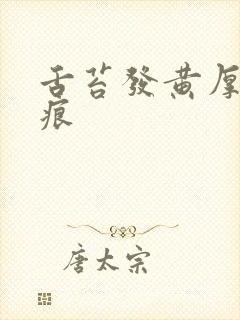 舌苔發黄厚
痕
唐太宗